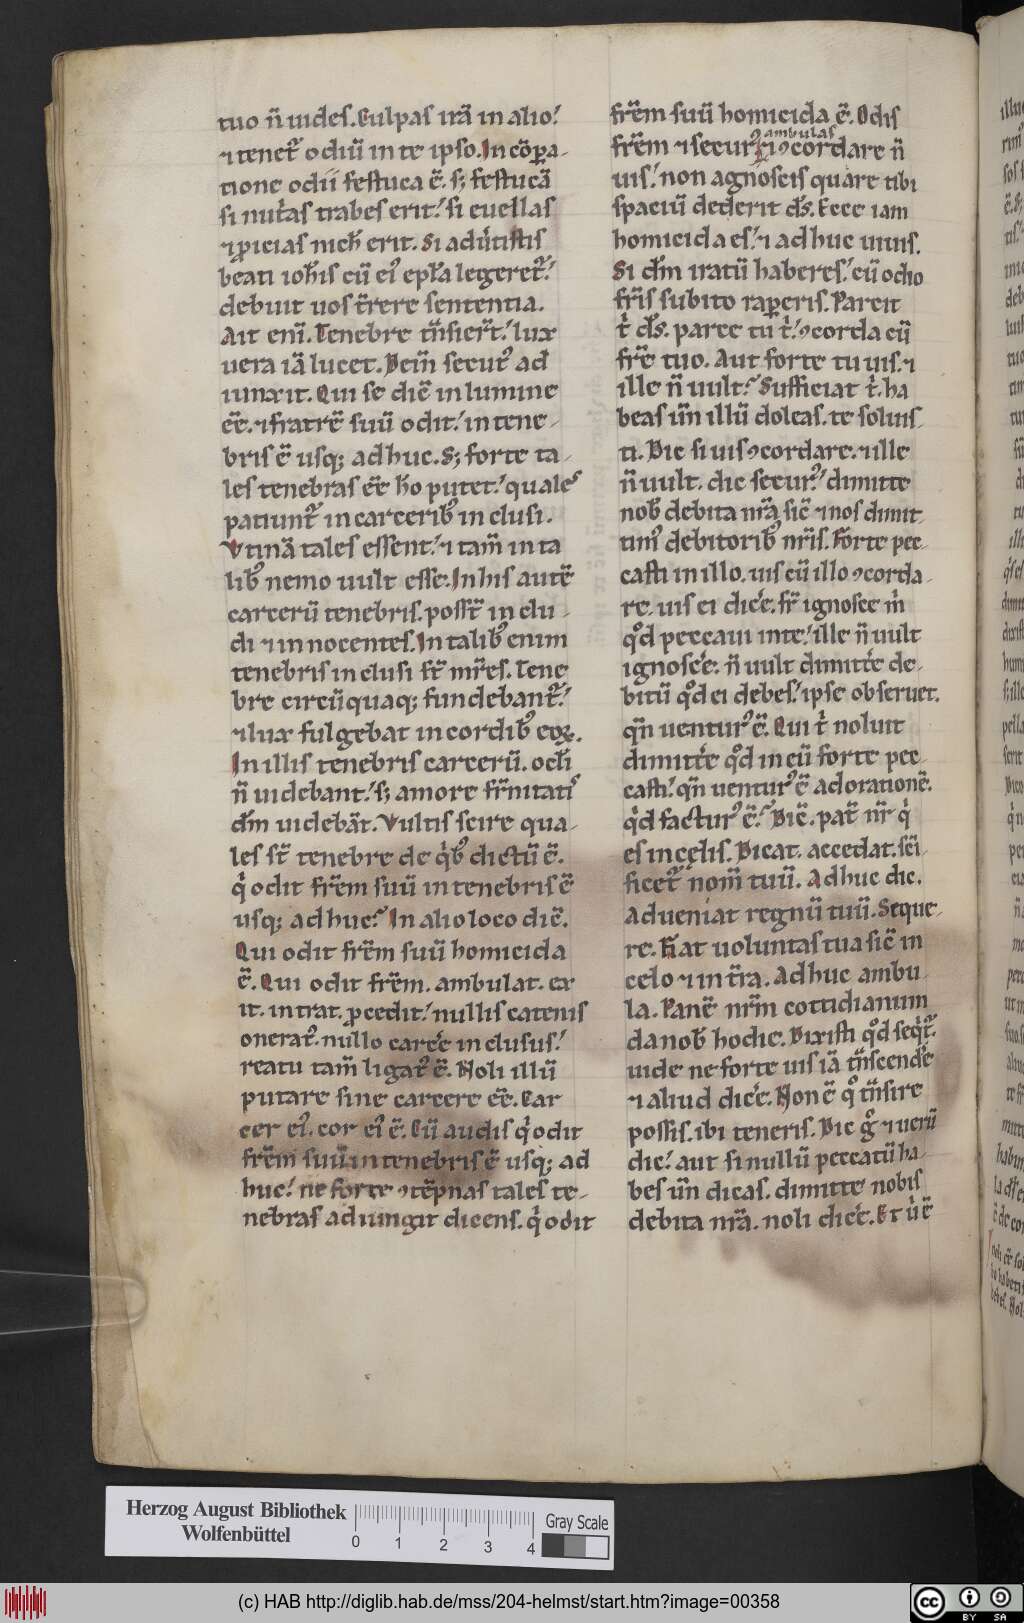 tuo n̄ uides. Culpas irā in alio:́
⁊ tenet᷑ odiū in te ipso. In cōꝑa-
tione odii festuca ē. s; festucā
si nut͛as trabes erit:́ si euellas
⁊ ꝓicias nich̄ erit. Si adu͛tistis
beati ioh̄is cū ei᷒ epl̄a legeret᷑:́
debuit uos t̄rere sententia.
Ait eni̅. Tenebre tn̄sier̄t:́ lux
uera iā lucet. Dein̄ secut᷒ ad
iunxit. Qui se diē in lumine
eē. ⁊ fratrē suū odit:́ in tene-
bris ē usq; adhuc. S; forte ta-
les tenebras eē h̄o putet:́ quales
patiunt᷑ in carcerib᷒ inclusi.
Vtinā tales essent:́ ⁊ tam̄ in ta
lib᷒ nemo uult esse. In his autē
carcerū tenebris. poss̄t inclu-
di ⁊ innocentes. In talib᷒ enim
tenebris inclusi st̄ mr̄es. Tene
bre circūquaq; fundebant᷑:́
⁊ lux fulgebat in cordib᷒ eoꝝ.
In illis tenebris carcerū. ocl̄i
n̄ uidebant:́ s; amore fr̄nitatis
dm̄ uidebāt. Vultis scire qua-
les st̄ tenebre de q͛b᷒ dictū ē.
q͛ odit fr̄em suū in tenebris ē
usq; adhuc? In alio loco diē.
Qui odit fr̄em suū homicida
ē. Qui odit fr̄em. ambulat. ex
it. intrat. ꝓcedit:́ nullis catenis
onerat᷒. nullo carc͛e inclusus:́
reatu tam̄ ligat᷒ ē. Noli illū
putare sine carcere eē. Car
cer ei᷒. cor ei᷒ ē. Cū audis q͛ odit
fr̄em suū in tenebris ē usq; ad
huc:́ ne forte ꝯtēpnas tales te-
nebras adiungit dicens. q͛ odit
fr̄em suū homicida ē. Odis
ambulas
fr̄em ⁊ secur᷒ ⁊ ꝯcordare n̄
uis:́ non agnoscis quare tibi
spaciū dederit ds̄. Ecce iam
homicida es:́ ⁊ adhuc uiuis.
Si dm̄ iratū haberes:́ cū odio
fr̄is subito raꝑeris. Parcit
t͛ ds̄. parce tu t͛:́ ꝯcorda cū
fr̄e tuo. Aut forte tu uis. ⁊
ille n̄ uult? Sufficiat t͛. ha
beas un̄ illū doleas. te soluis-
ti. Dic si uis ꝯcordare. ⁊ ille
n̄ uult. dic secur᷒:́ dimitte
nob᷒ debita nr̄a sic̄ ⁊ nos dimit
tim᷒ debitorib᷒ nr̄is. Forte pec-
casti in illo. uis cū illo ꝯcorda-
re. uis ei dic͛e. fr̄ ignosce m͛
qd̄ peccaui in te:́ ille n̄ uult
ignosc͛e. n̄ uult dimitt͛e de-
bitū qd̄ ei debes:́ ipse obseruet.
qn̄ uentur᷒ ē. Qui t͛ noluit
dimitt͛e qd̄ in eū forte pec-
casti:́ qn̄ uentur᷒ ē ad orationē.
q͛d factur᷒ ē? Dic̄. pat̄ nr̄ q͛
es in cęlis. Dicat. accedat. sc̄i-
ficet᷑ nom̄ tuū. Adhuc dic.
Adueniat regnū tuū. Seque-
re. Fiat uoluntas tua sic̄ in
celo ⁊ in t̄ra. Adhuc ambu-
la. Panē nr̄m cottidianum
da nob̄ hodie. Dixisti qd̄ seq͛t᷑.
uide ne forte uis iā tn̄scend͛e
⁊ aliud dic͛e. Non ē qͦ tn̄sire
possis. ibi teneris. Dic gͦ ⁊ uerū
dic:́ aut si nullū peccatū ha-
bes un̄ dicas. dimitte nobis
debita nr̄a. noli dic͛e. Et u͛ ē
Herzog August Bibliothek
Wolfenbüttel
0 1 2 3 4
Gray Scale
(c) HAB http://diglib.hab.de/mss/204-helmst/start.htm?image=00358
CC BY SA